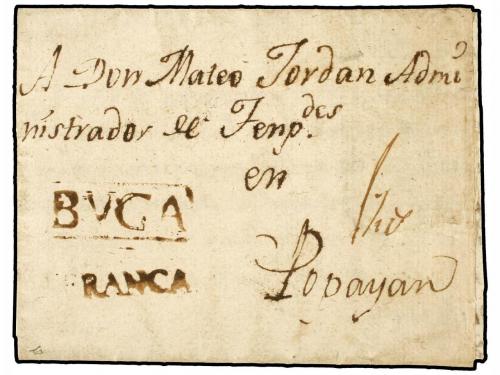 A Don Mateo Jordan Admi
nistrador de Temp.des
en
Popayan
BVGA
RANCA